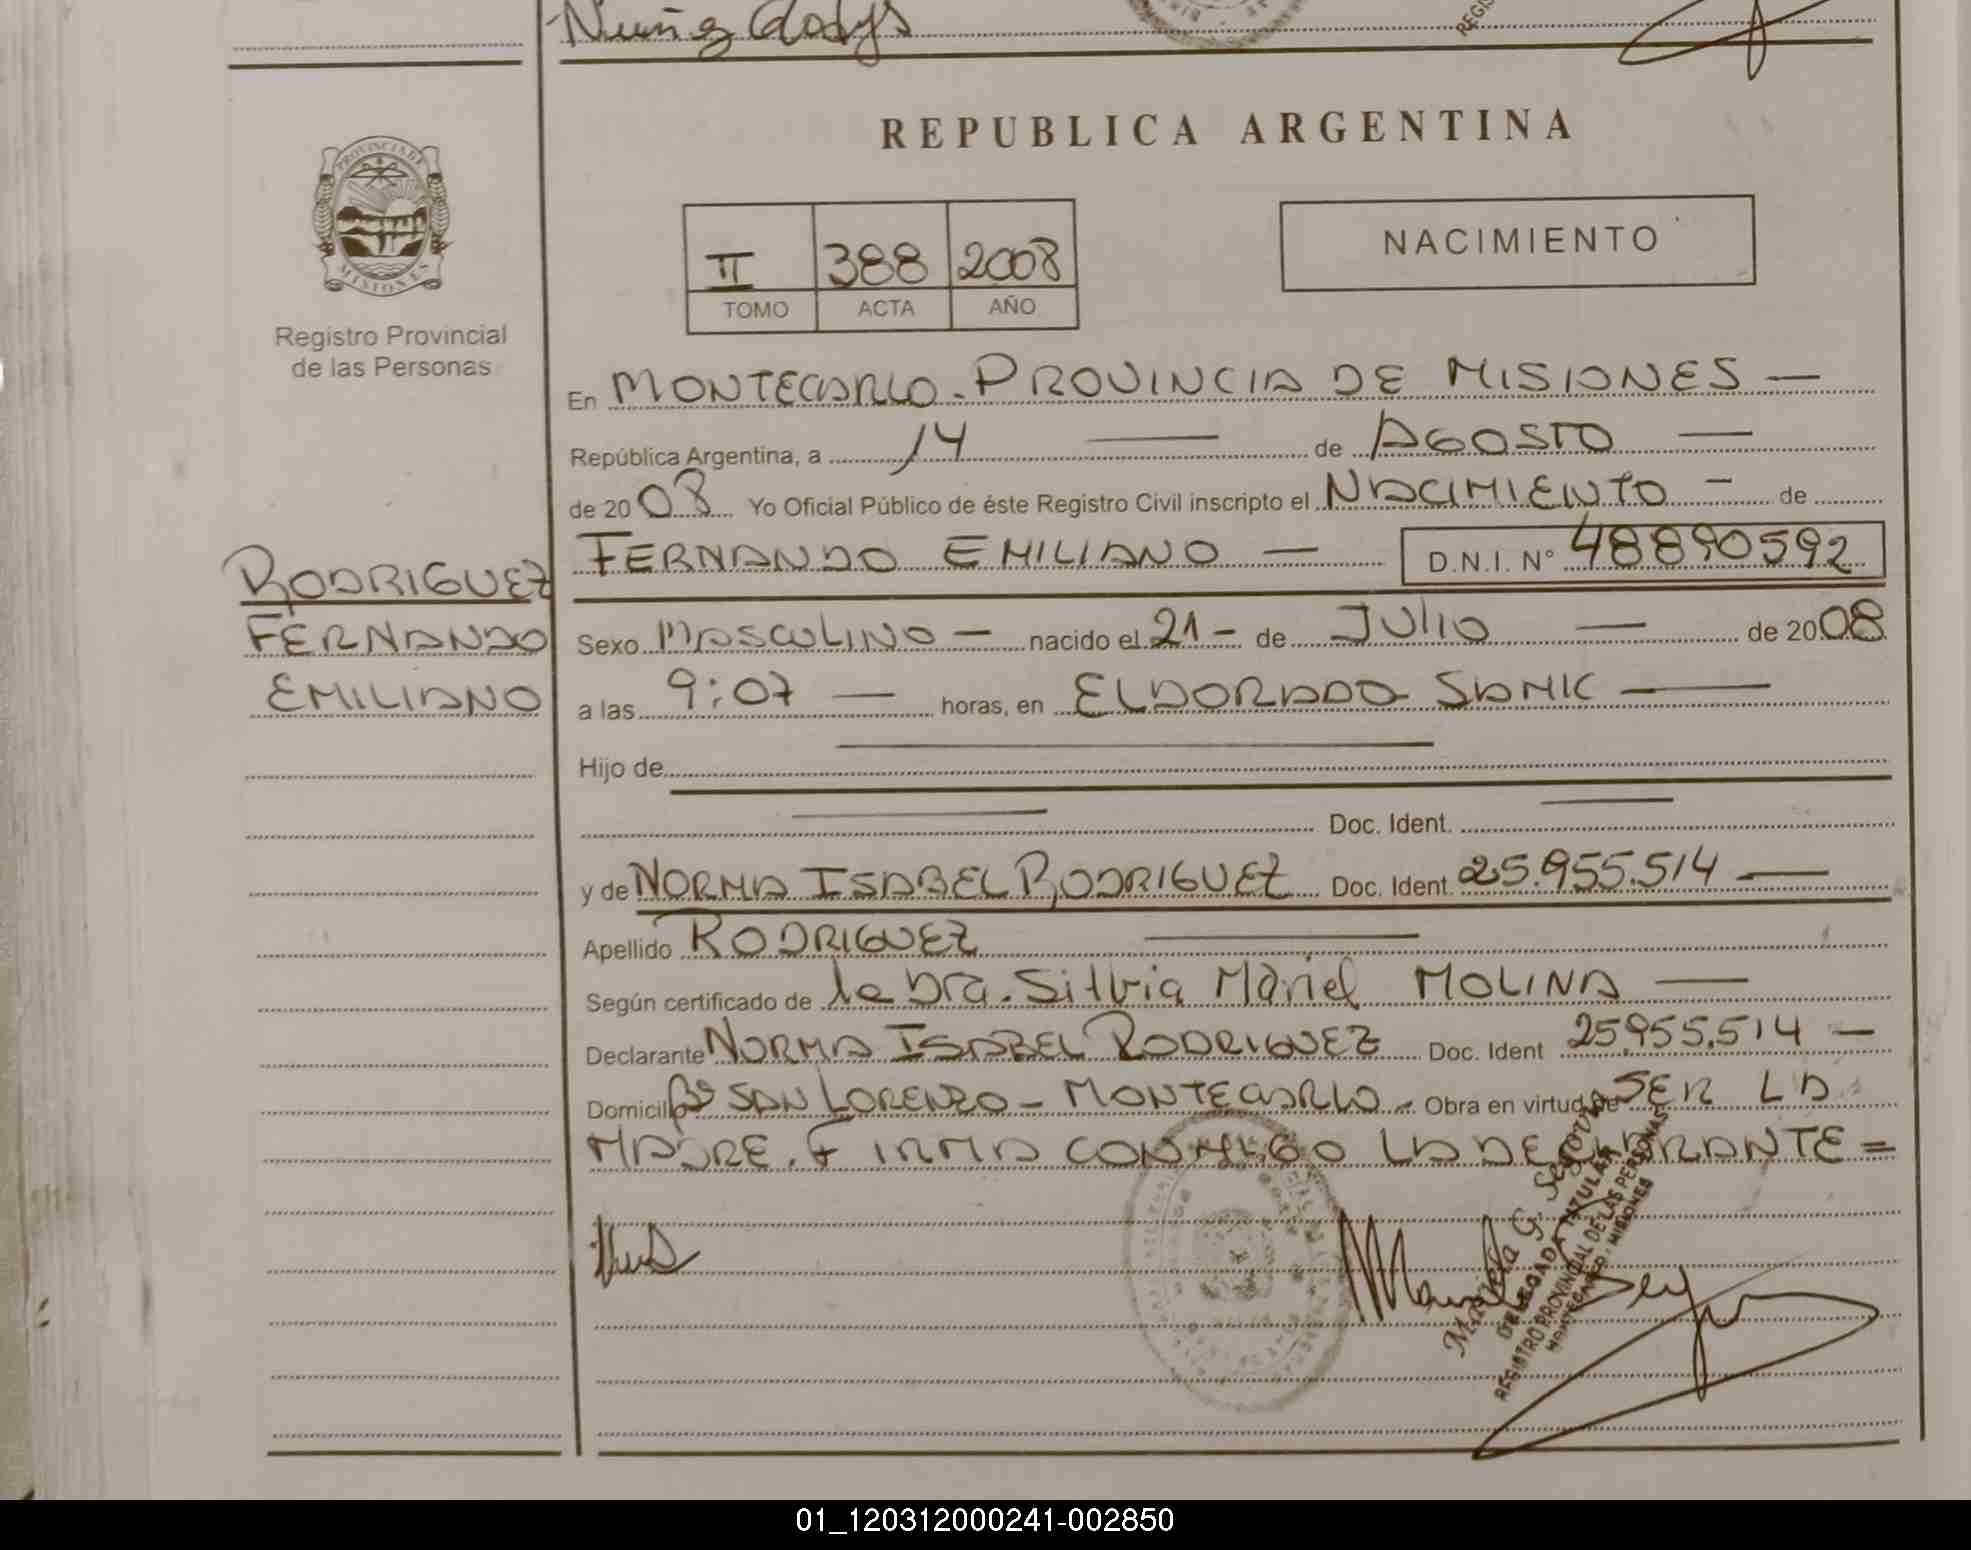 Nuñez Gladys
REPUBLICA ARGENTINA
PROVINCIA DE
MISIONES
Registro Provincial
de las Personas
II 388 2008
TOMO ACTA AÑO
NACIMIENTO
En MONTECARLO - PROVINCIA DE MISIONES —
República Argentina, a 14 — de AGOSTO —
de 2008 Yo Oficial Público de éste Registro Civil inscripto el NACIMIENTO - de
FERNANDO EMILIANO — D.N.I. Nº 48890592
RODRIGUEZ
FERNANDO
EMILIANO
Sexo MASCULINO — nacido el 21 - de JULIO — de 2008
a las 9:07 — horas, en ELDORADO SAMIC —
Hijo de —
— Doc. Ident. —
y de NORMA ISABEL RODRIGUEZ Doc. Ident. 25.955.514 —
Apellido RODRIGUEZ —
Según certificado de la Dra. Silvia Mariel MOLINA —
Declarante NORMA ISABEL RODRIGUEZ Doc. Ident 25.955.514 —
Domicilio Bº SAN LORENZO - MONTECARLO - Obra en virtud de SER LA
MADRE. FIRMA CONMIGO LA DECLARANTE =
Mariela G. Segovia
DELEGADA TITULAR
REGISTRO PROVINCIAL DE LAS PERSONAS
MONTECARLO - MISIONES
01_120312000241-002850